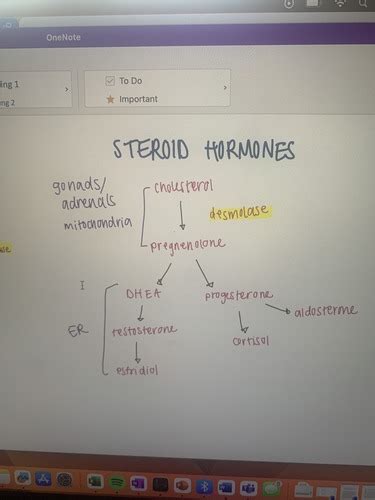 OneNote
ing 1
ng 2
To Do
Important
STEROID HORMONES
gonads/
adrenals
mitochondria
cholesterol
desmolase
pregnenolone
DHEA
progesterone
aldosterone
ER
testosterone
cortisol
estridiol